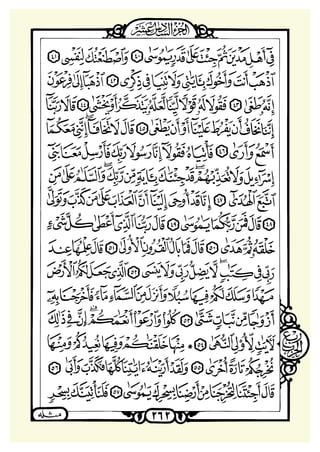 الجزء السادس عشر
فِىٓ أَهْلِ مَدْيَنَ ثُمَّ جِئْتَ عَلَىٰ قَدَرٍ يَٰمُوسَىٰ ٤٠ وَٱصْطَنَعْتُكَ لِنَفْسِى ٤١
ٱذْهَبْ أَنتَ وَأَخُوكَ بِـَٔايَٰتِى وَلَا تَنِيَا فِى ذِكْرِى ٤٢ ٱذْهَبَآ إِلَىٰ فِرْعَوْنَ
إِنَّهُۥ طَغَىٰ ٤٣ فَقُولَا لَهُۥ قَوْلًا لَّيِّنًا لَّعَلَّهُۥ يَتَذَكَّرُ أَوْ يَخْشَىٰ ٤٤ قَالَا رَبَّنَآ
إِنَّنَا نَخَافُ أَن يَفْرُطَ عَلَيْنَآ أَوْ أَن يَطْغَىٰ ٤٥ قَالَ لَا تَخَافَآ إِنَّنِى مَعَكُمَآ
أَسْمَعُ وَأَرَىٰ ٤٦ فَأْتِيَاهُ فَقُولَآ إِنَّا رَسُولَا رَبِّكَ فَأَرْسِلْ مَعَنَا بَنِىٓ
إِسْرَٰٓءِيلَ وَلَا تُعَذِّبْهُمْ قَدْ جِئْنَٰكَ بِـَٔايَةٍ مِّن رَّبِّكَ وَٱلسَّلَٰمُ عَلَىٰ مَنِ
ٱتَّبَعَ ٱلْهُدَىٰٓ ٤٧ إِنَّا قَدْ أُوحِىَ إِلَيْنَآ أَنَّ ٱلْعَذَابَ عَلَىٰ مَن كَذَّبَ وَتَوَلَّىٰ
٤٨ قَالَ فَمَن رَّبُّكُمَا يَٰمُوسَىٰ ٤٩ قَالَ رَبُّنَا ٱلَّذِىٓ أَعْطَىٰ كُلَّ شَىْءٍ
خَلْقَهُۥ ثُمَّ هَدَىٰ ٥٠ قَالَ فَمَا بَالُ ٱلْقُرُونِ ٱلْأُولَىٰ ٥١ قَالَ عِلْمُهَا عِندَ
رَبِّى فِى كِتَٰبٍ لَّا يَضِلُّ رَبِّى وَلَا يَنسَى ٥٢ ٱلَّذِى جَعَلَ لَكُمُ ٱلْأَرْضَ
مَهْدًا وَسَلَكَ لَكُمْ فِيهَا سُبُلًا وَأَنزَلَ مِنَ ٱلسَّمَآءِ مَآءً فَأَخْرَجْنَا بِهِۦٓ
أَزْوَٰجًا مِّن نَّبَاتٍ شَتَّىٰ ٥٣ كُلُوا۟ وَٱرْعَوْا۟ أَنْعَٰمَكُمْ إِنَّ فِى ذَٰلِكَ
لَءَايَٰتٍ لِّأُو۟لِى ٱلنُّهَىٰ ٥٤ مِنْهَا خَلَقْنَٰكُمْ وَفِيهَا نُعِيدُكُمْ وَمِنْهَا
نُخْرِجُكُمْ تَارَةً أُخْرَىٰ ٥٥ وَلَقَدْ أَرَيْنَٰهُ ءَايَٰتِنَا كُلَّهَا فَكَذَّبَ وَأَبَىٰ ٥٦
قَالَ أَجِئْتَنَا لِتُخْرِجَنَا مِنْ أَرْضِنَا بِسِحْرِكَ يَٰمُوسَىٰ ٥٧ فَلَنَأْتِيَنَّكَ بِسِحْرٍ
٢٦٢
مثله